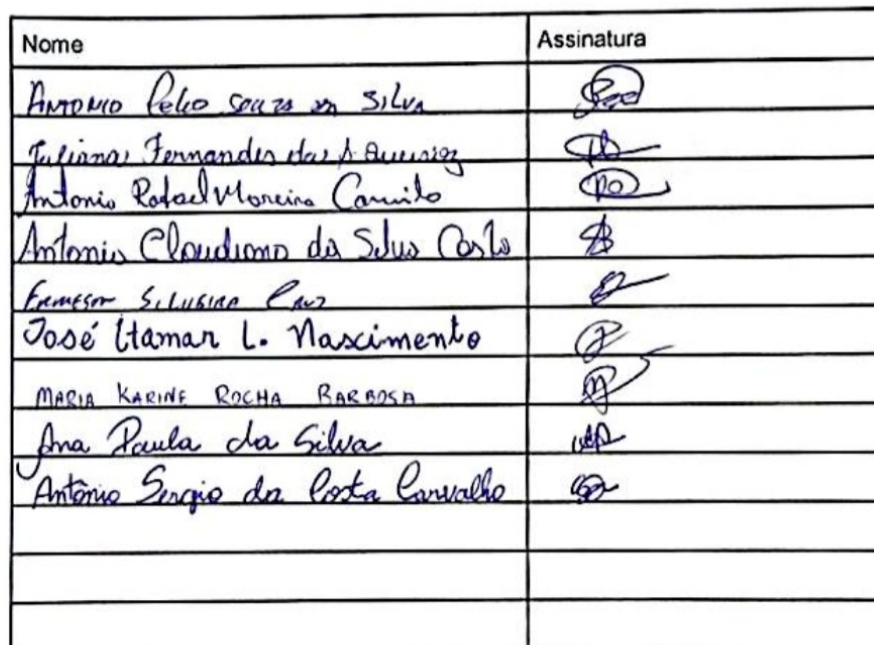 Nome Assinatura
Antonio Souza da Silva
Juliana Fernandes da
Antonio Rafael Moreira Camilo
Antonio Claudiano da Silva Costa
Silveira Cruz
José Itamar L. Nascimento
MARIA KARINE ROCHA BARBOSA
Ana Paula da Silva
Antônio Sergio da Costa Carvalho